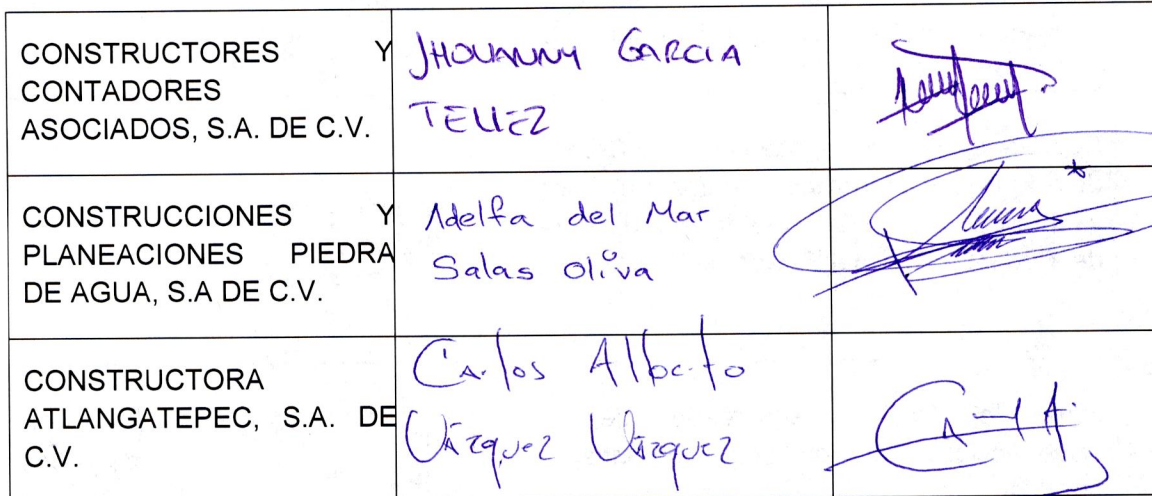 CONSTRUCTORES Y
CONTADORES
ASOCIADOS, S.A. DE C.V.
JHOVANNY GARCIA
TELLEZ
CONSTRUCCIONES Y
PLANEACIONES PIEDRA
DE AGUA, S.A DE C.V.
Adelfa del Mar
Salas Oliva
CONSTRUCTORA
ATLANGATEPEC, S.A. DE
C.V.
Carlos Alberto
Vázquez Vázquez